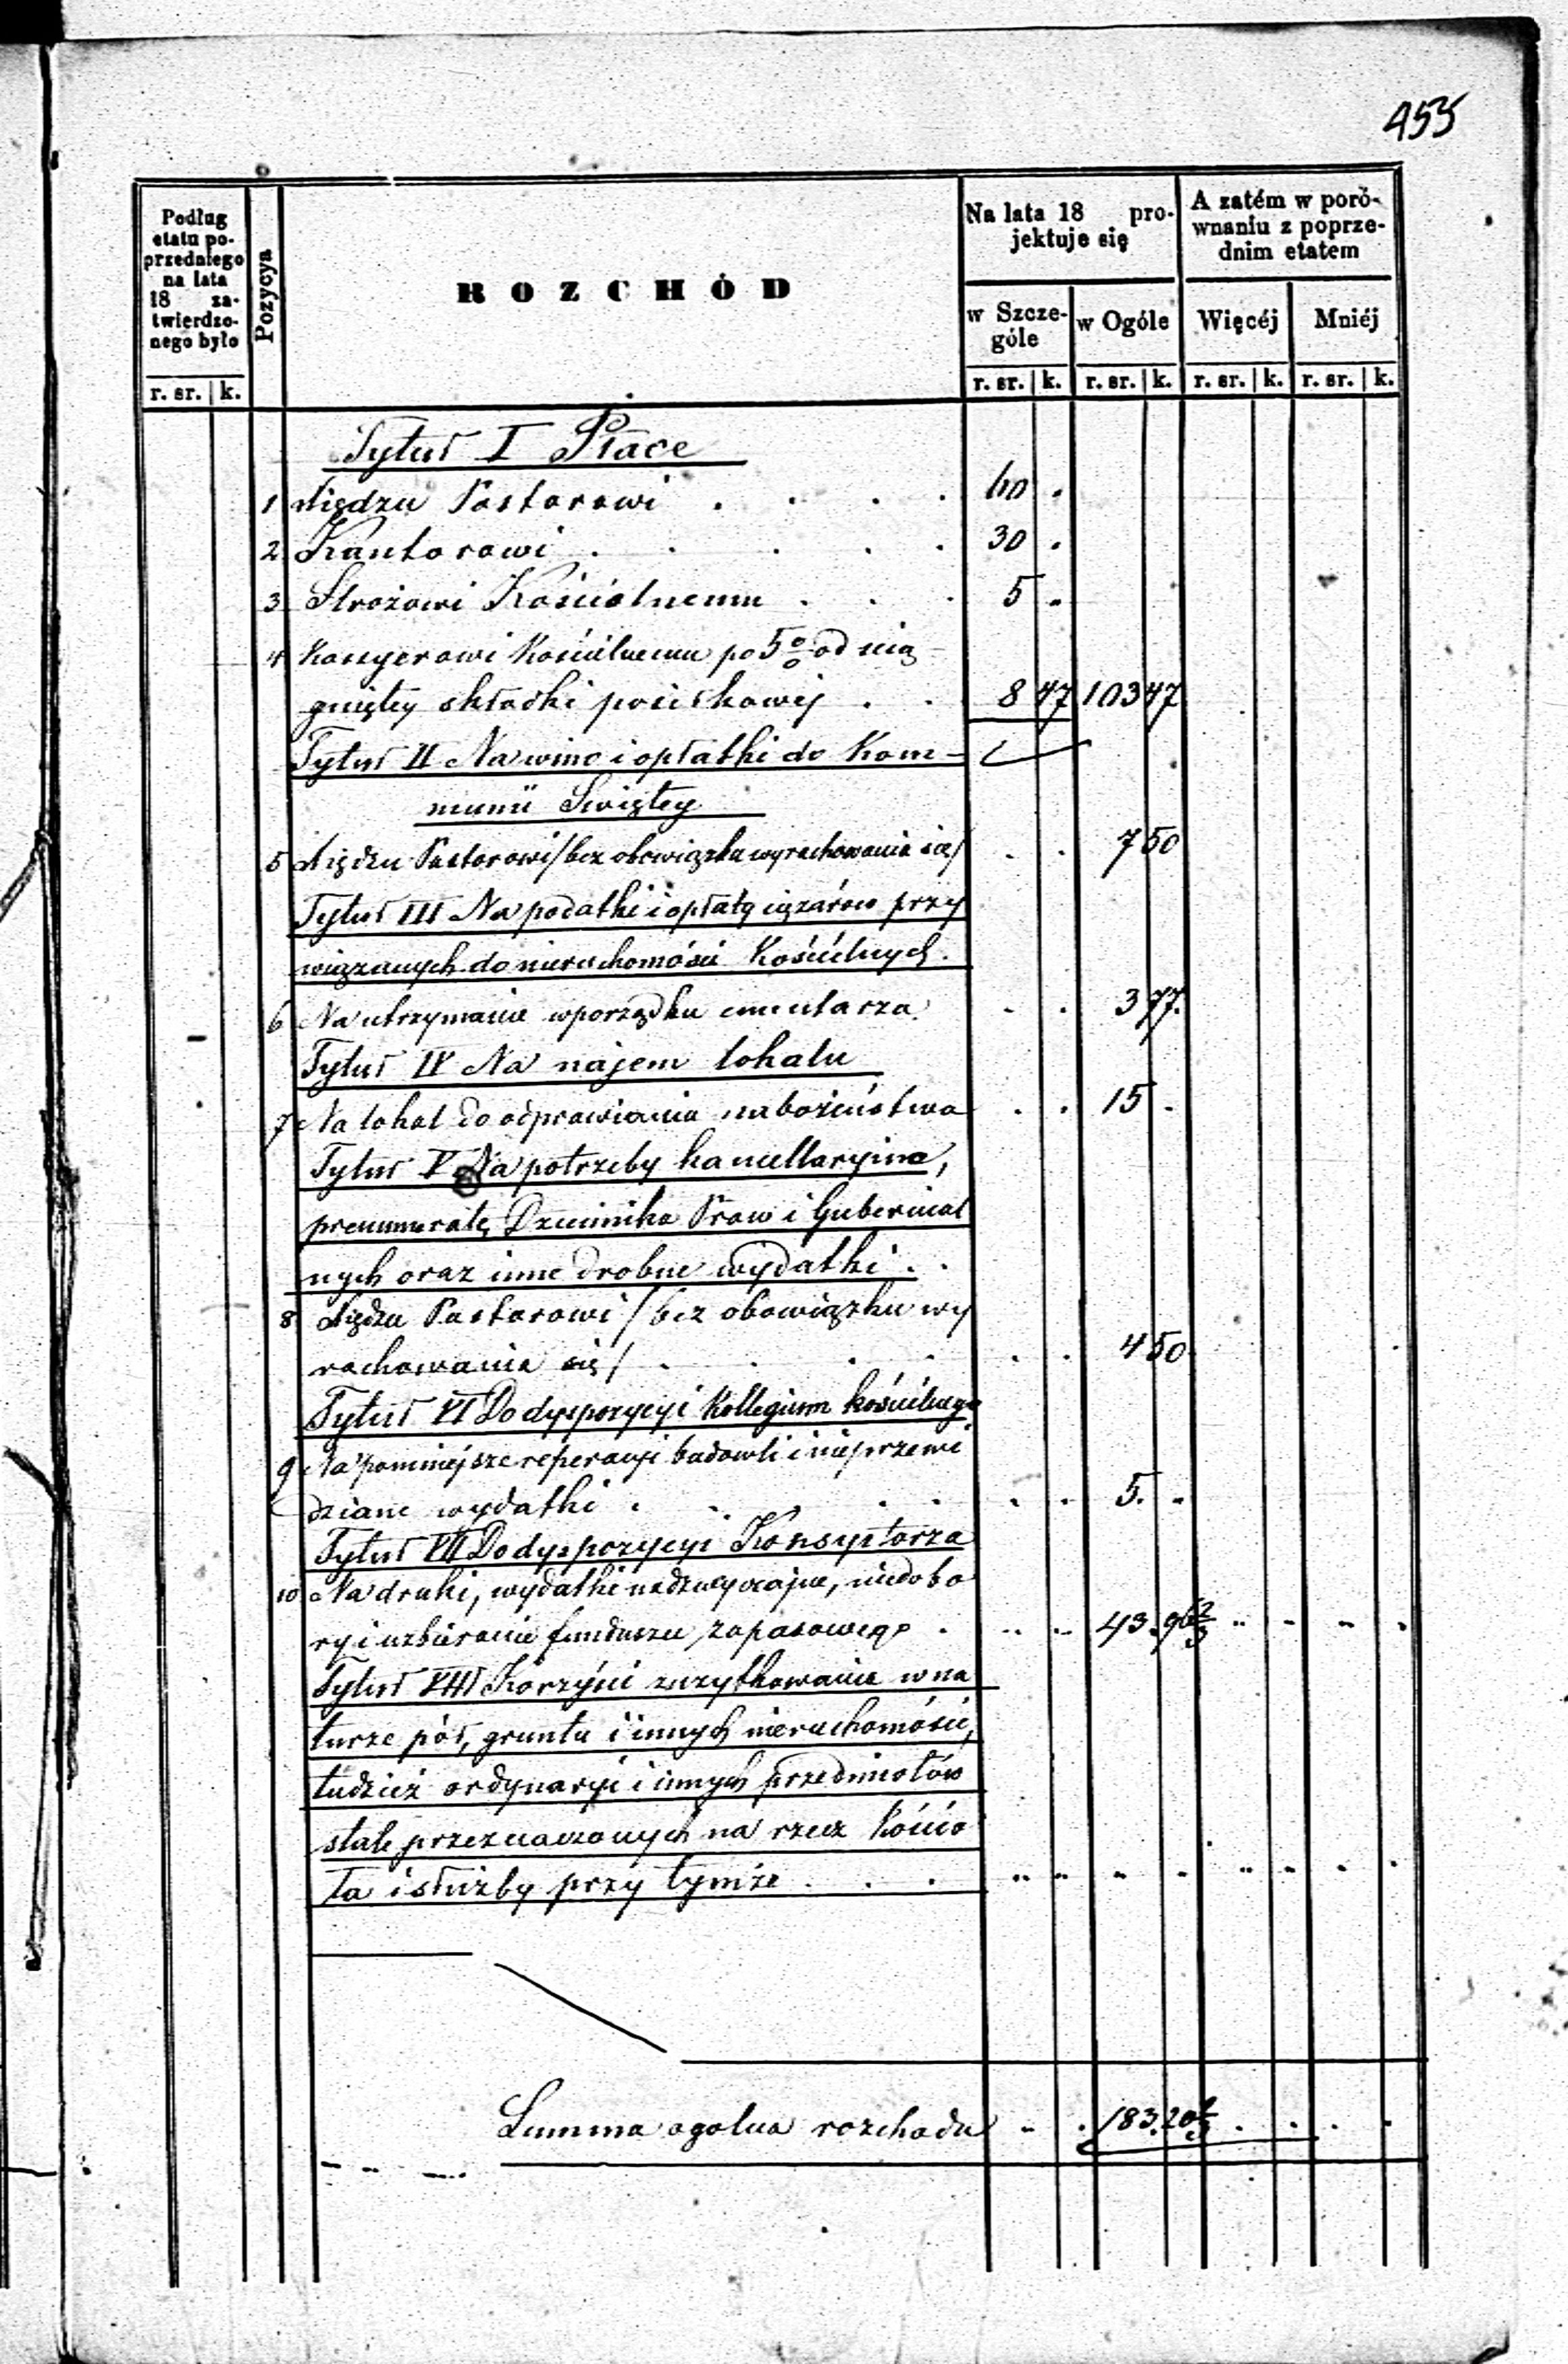 455
Podług
etatu po-
przedniego
na lata
18 za-
twierdzo-
nego było
r. sr. k.
Pozycya
ROZCHÓD
Na lata 18 pro-
jektuje się
w Szcze-
góle
r. sr. k.
w Ogóle
r. sr. k.
A zatém w poró-
wnaniu z poprze-
dnim etatem
Więcéj
r. sr. k.
Mniéj
r. sr. k.
Tytuł I Płace
1 Xiędzu Pastorowi . . . . 60 .
2 Kantorowi . . . . . 30 .
3 Stróżowi Kościelnemu . . . 5 .
4 Kassyerowi Kościelnemu po 5 0/0 od ścią-
gniętey składki pościkowej . . 8 47 103 47
Tytuł II Na wino i opłatki do Kom-
munii Swiętey
5 Xiędzu Pastorowi /bez obowiązku wyrachowania sie/ . . 7 50
Tytuł III Na podatki i opłatę ciężarów przy
wiązanych do nieruchomości Kościelnych.
6 Na utrzymanie w porządku cmentarza . . 3 77.
Tytuł IV Na najem lokalu
7 Na lokal do odprawiania nabożeństwa . . 15 .
Tytuł V Na potrzeby kancellaryine,
prenumeratę Dziennika Praw i Gubernial
nych oraz inne drobne wydatki . .
8 Xiędzu Pastorowi / bez obowiązku wy
rachowania się / . . . . . . 4 50
Tytuł VI Do dyspozycyi Kollegium kościelnego
9 Na pomniejsze reperacyje budowli i nieprzewi
dziane wydatki . . . . . . 5. .
Tytuł VII Do dyspozycyi Konsystorza
10 Na druki, wydatki nadzwyczajne, niedobo
ry i uzbieranie funduszu zapasowego . . . 43. 96 2/3
Tytuł VIII Korzyści zużytkowania w na
turze pól, gruntu i innych nieruchomości,
tudzież ordynaryi i innych przedmiotów
stale przeznaczonych na rzecz Kościo
ła i służby przy tymże . . .
Summa ogolna rozchodu . . 183. 20